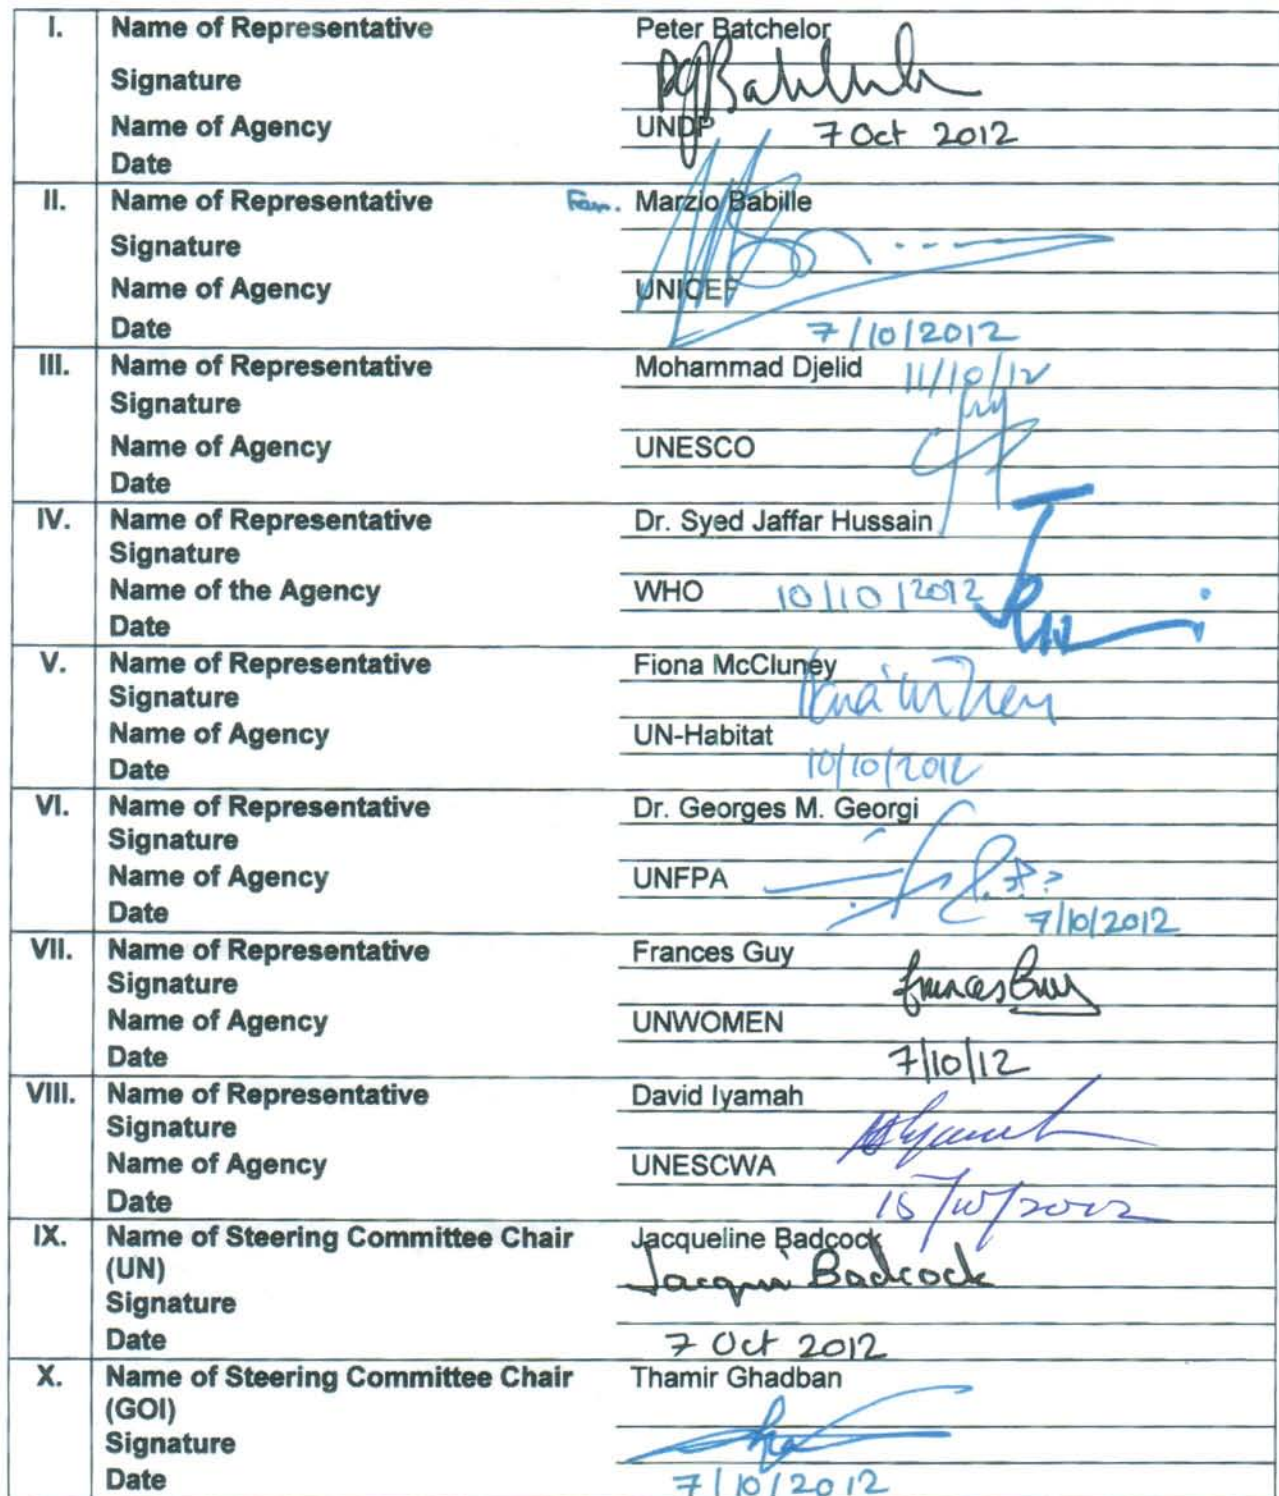 I. Name of Representative Peter Batchelor
Signature
Name of Agency UNDP 7 Oct 2012
Date
II. Name of Representative Marzio Babille
Signature
Name of Agency UNICEF
Date 7/10/2012
III. Name of Representative Mohammad Djelid 11/10/12
Signature
Name of Agency UNESCO
Date
IV. Name of Representative Dr. Syed Jaffar Hussain
Signature
Name of the Agency WHO 10/10/2012
Date
V. Name of Representative Fiona McCluney
Signature
Name of Agency UN-Habitat
Date 10/10/2012
VI. Name of Representative Dr. Georges M. Georgi
Signature
Name of Agency UNFPA
Date 7/10/2012
VII. Name of Representative Frances Guy
Signature Frances Guy
Name of Agency UNWOMEN
Date 7/10/12
VIII. Name of Representative David Iyamah
Signature
Name of Agency UNESCWA
Date 15/10/2012
IX. Name of Steering Committee Chair Jacqueline Badcock
(UN) Jacqui Badcock
Signature
Date 7 Oct 2012
X. Name of Steering Committee Chair Thamir Ghadban
(GOI)
Signature
Date 7/10/2012